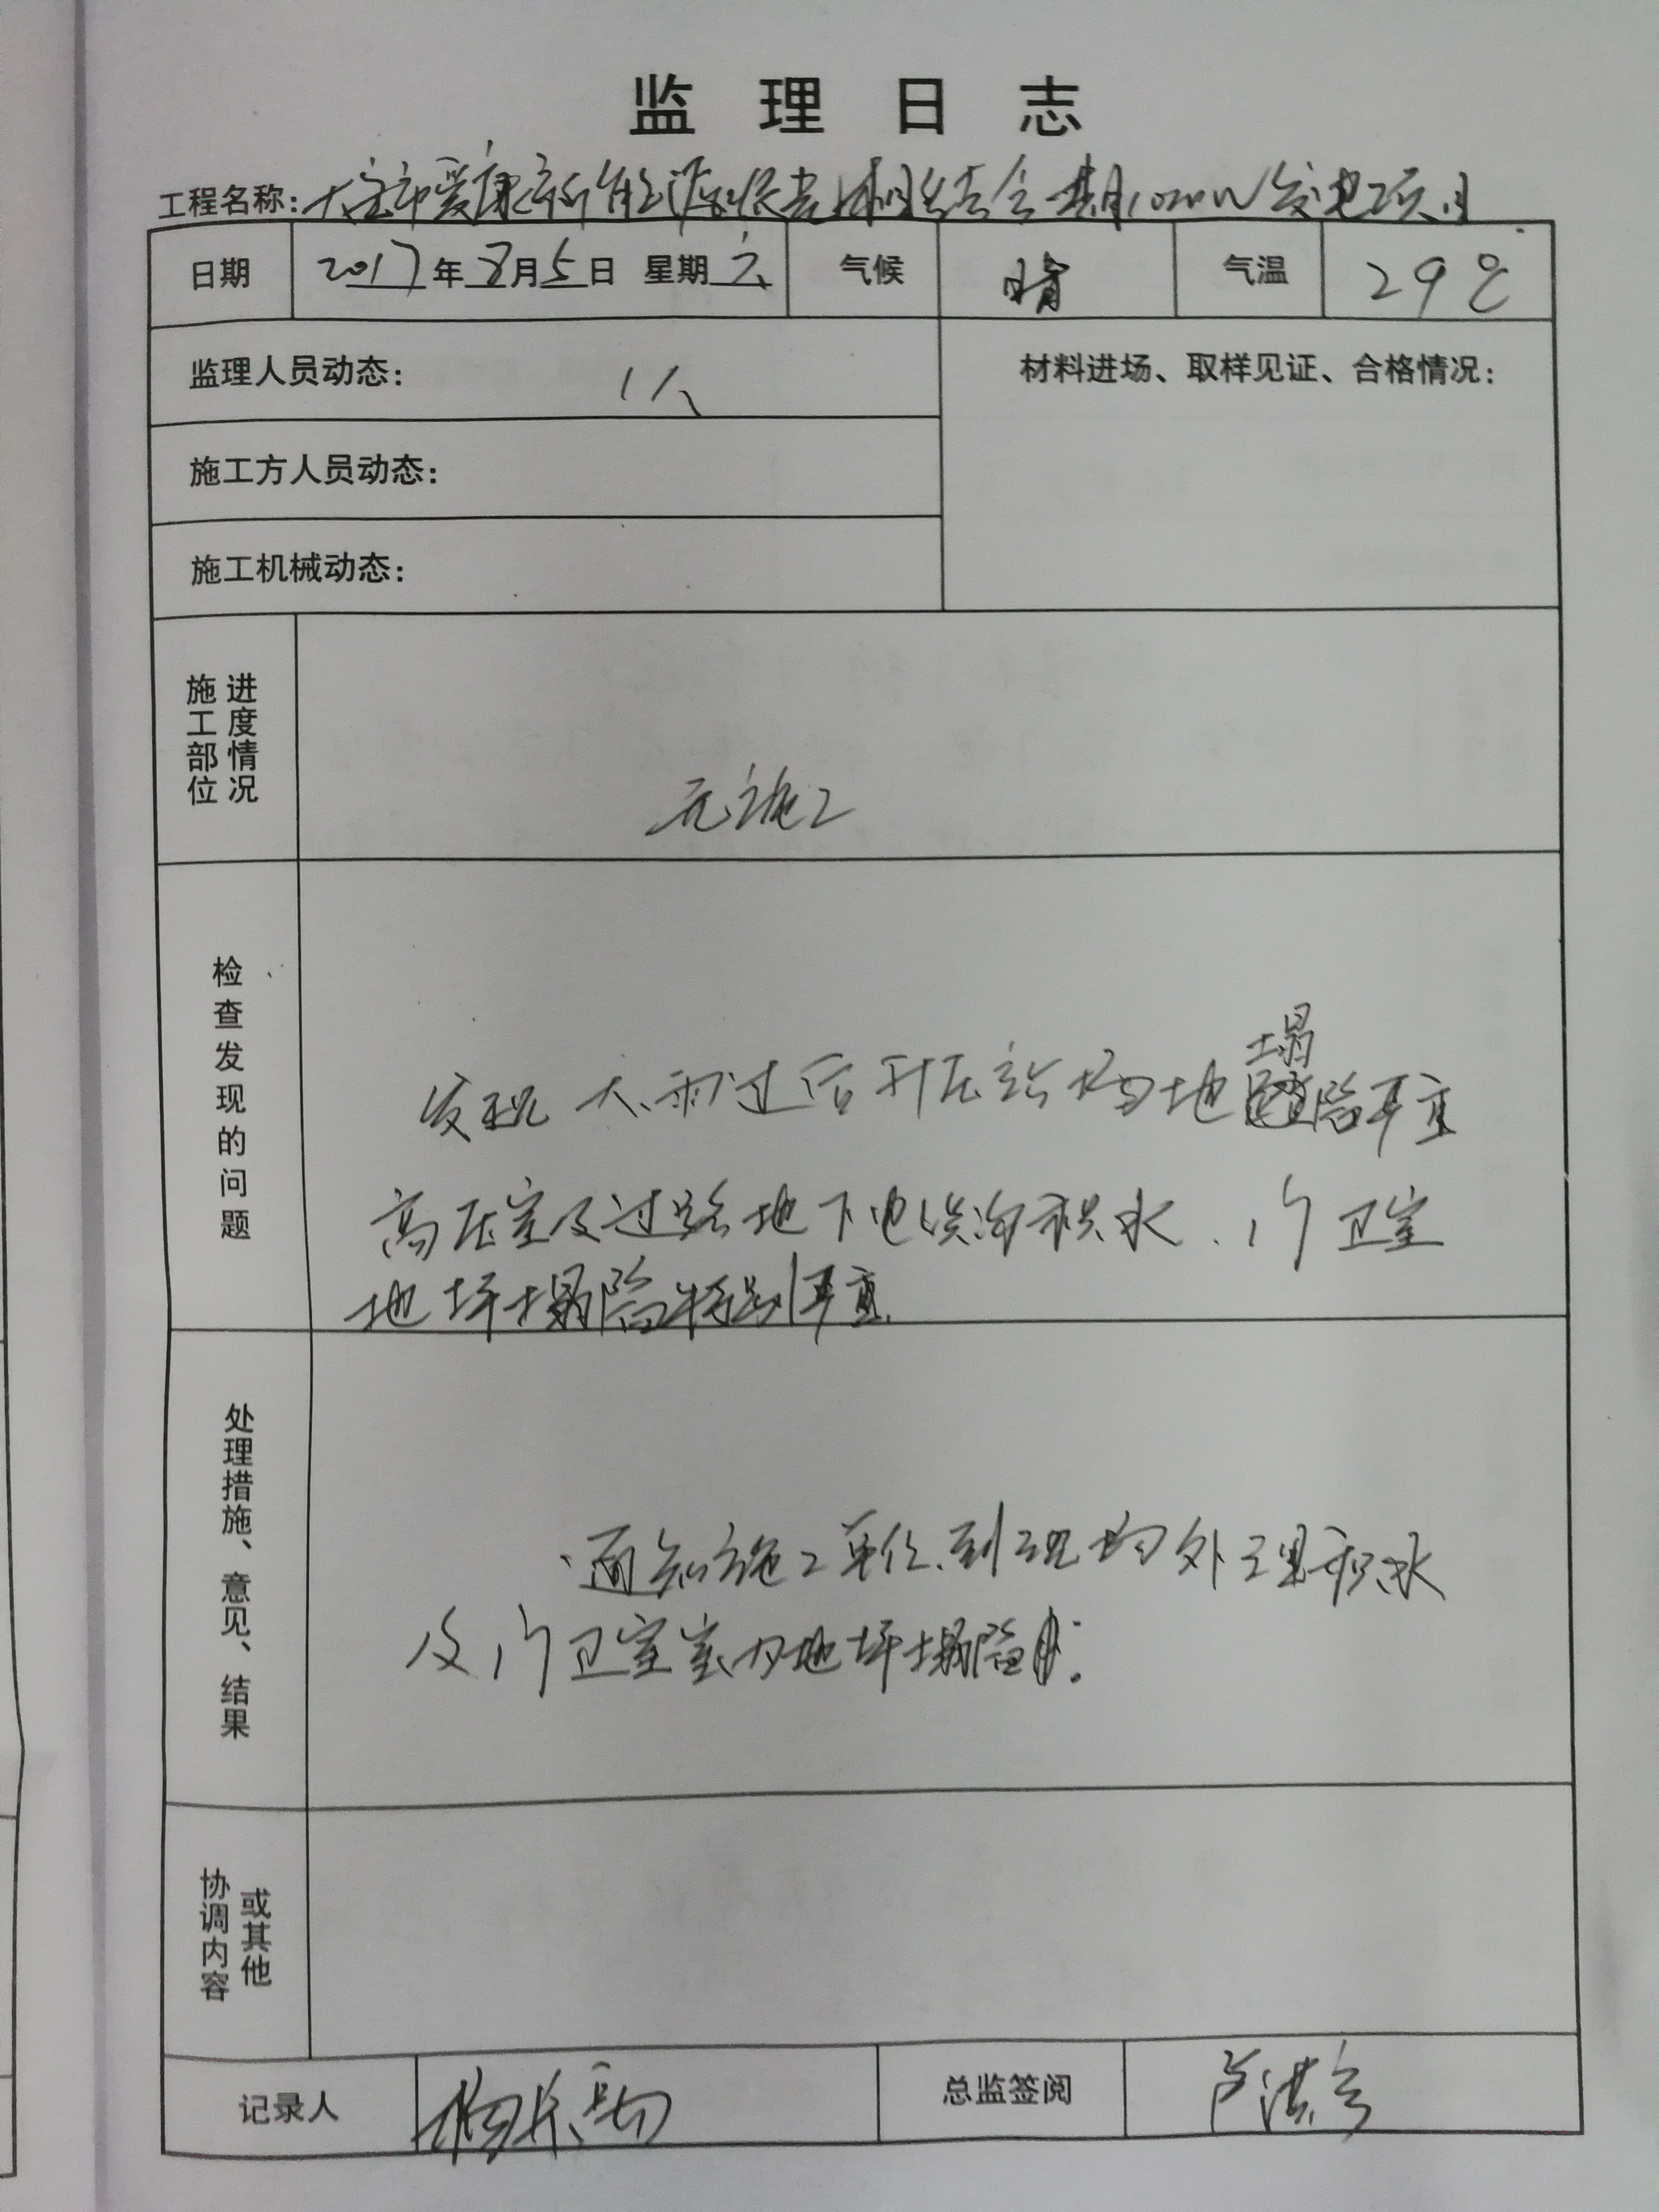 监理日志
工程名称:大宝市爱康新能源农光相结合一期10MW发电项目
日期 2017年8月5日 星期六 气候 晴 气温 29℃
监理人员动态: 1人 材料进场、取样见证、合格情况:
施工方人员动态:
施工机械动态:
施工部位 进度情况
无施工
检查发现的问题
发现大雨过后升压站场地塌陷严重
高压室及过路地下电缆沟积水、门卫室
地坪塌陷特别严重
处理措施、意见、结果
通知施工单位到现场处理积水
及门卫室室内地坪塌陷
协调内容 或其他
记录人 总监签阅